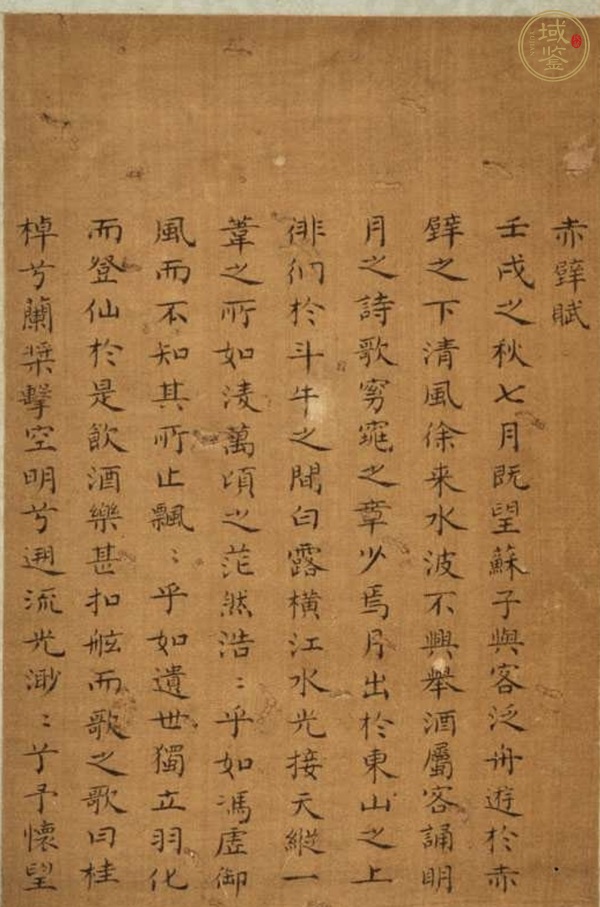 赤壁賦
壬戌之秋七月既望蘇子與客泛舟遊於赤
壁之下清風徐来水波不興舉酒屬客誦明
月之詩歌窈窕之章少焉月出於東山之上
徘徊於斗牛之間白露橫江水光接天縱一
葦之所如凌萬頃之茫然浩〻乎如馮虛御
風而不知其所止飄〻乎如遺世獨立羽化
而登仙於是飲酒樂甚扣舷而歌之歌曰桂
棹兮蘭槳擊空明兮遡流光渺〻兮予懷望
域鉴